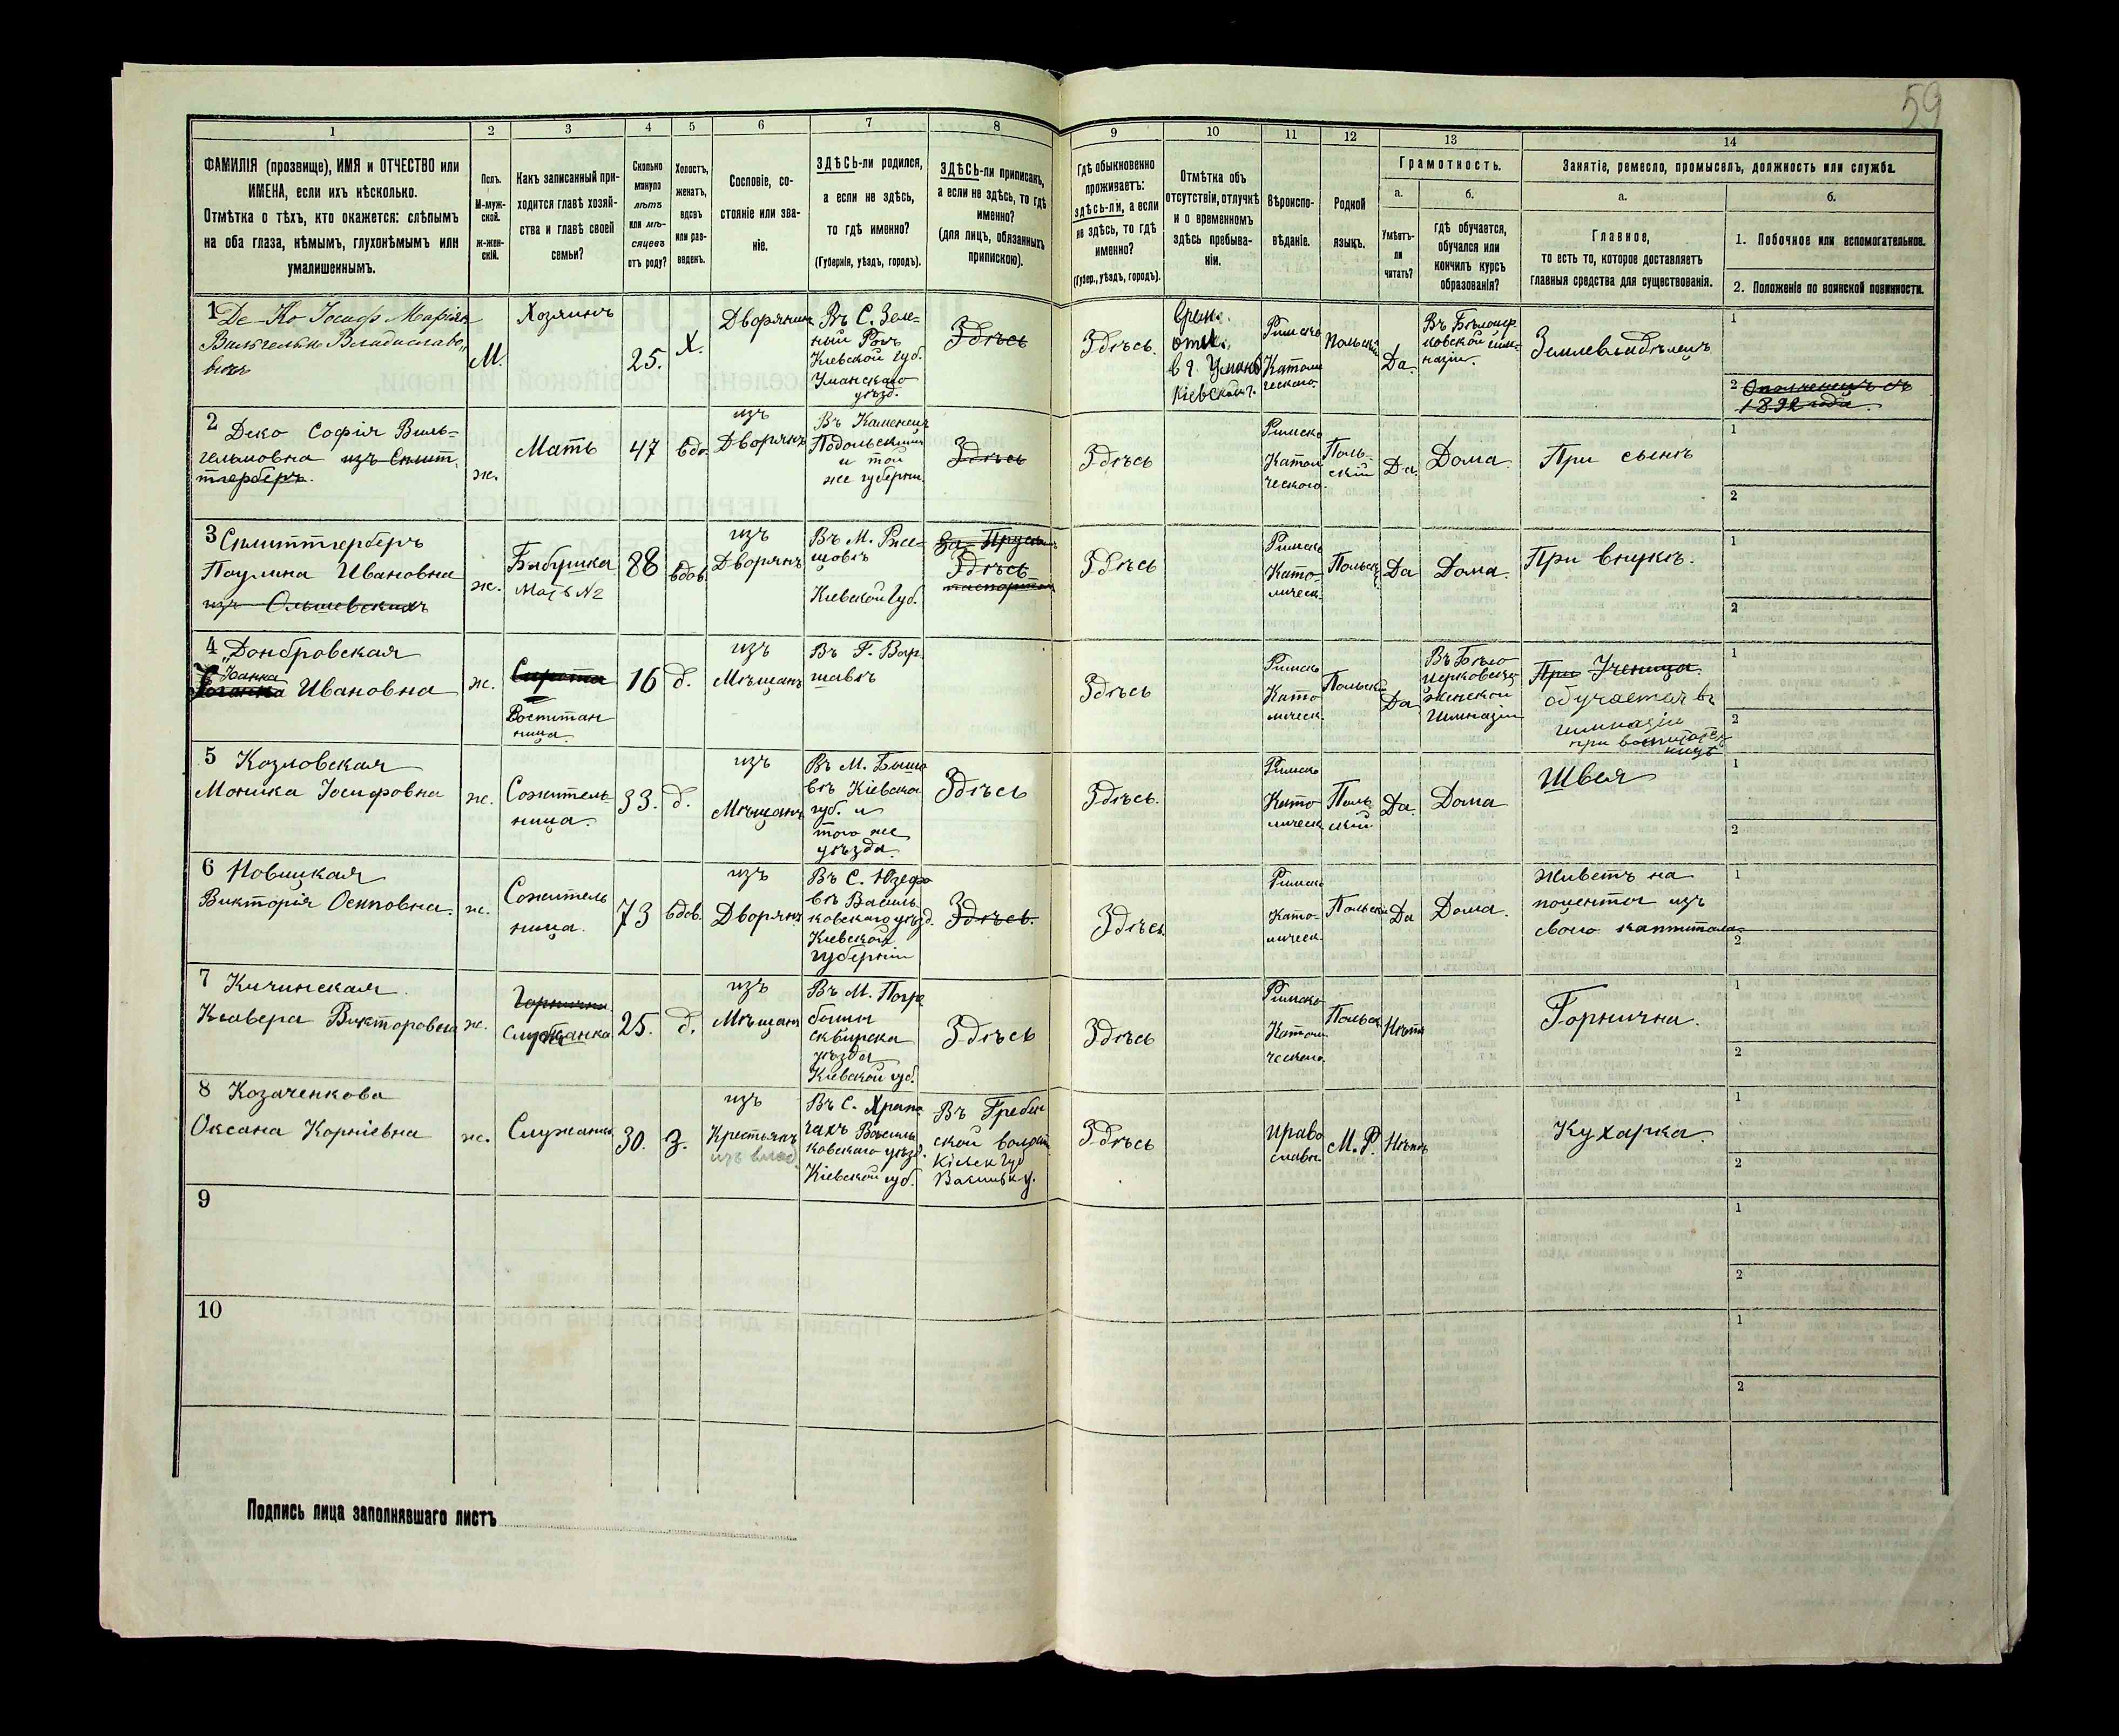 59
1
2
3
4
5
6
7
8
9
10
11
12
13
14
ФАМИЛІЯ (прозвище), ИМЯ и ОТЧЕСТВО или
ИМЕНА, если ихъ нѣсколько.
Отмѣтка о тѣхъ, кто окажется: слѣпымъ
на оба глаза, нѣмымъ, глухонѣмымъ или
умалишеннымъ.
Полъ.
М-муж-
ской.
ж-жен-
скій.
Какъ записанный при-
ходится главѣ хозяй-
ства и главѣ своей
семьи?
Сколько
минуло
лѣтъ
или мѣ-
сяцевъ
отъ роду?
Холостъ,
женатъ,
вдовъ
или раз-
веденъ.
Сословіе, со-
стояніе или зва-
ніе.
ЗДѢСЬ-ли родился,
а если не здѣсь,
то гдѣ именно?
(Губернія, уѣздъ, городъ).
ЗДѢСЬ-ли приписанъ,
а если не здѣсь, то гдѣ
именно?
(для лицъ, обязанныхъ
припискою).
Гдѣ обыкновенно
проживаетъ:
здѣсь-ли, а если
не здѣсь, то гдѣ
именно?
(Губер., уѣздъ, городъ).
Отмѣтка объ
отсутствіи, отлучкѣ
и о временномъ
здѣсь пребыва-
ніи.
Вѣроиспо-
вѣданіе.
Родной
языкъ.
Грамотность.
а.
б.
Умѣетъ-
ли
читать?
гдѣ обучается,
обучался или
кончилъ курсъ
образованія?
Занятіе, ремесло, промыселъ, должность или служба.
а.
б.
Главное,
то есть то, которое доставляетъ
главныя средства для существованія.
1. Побочное или вспомогательное.
2. Положеніе по воинской повинности.
1 Де-Ко Іосиф Маріян
Вильгельмъ Владиславо-
вичъ
М.
Хозяинъ
25.
Х.
Дворянинъ
Въ С. Зеле-
ный Рогъ
Кіевской губ.
Уманскаго
уѣзд.
Здѣсь
Здѣсь.
Врем.
отл.
в г. Умань
Кіевской г.
Римско
Католи
ческаго
Польскій
Да.
Въ Бѣлоцер
ковской гим-
назіи.
Землевладѣлецъ
1
2 Ополченецъ съ
1892 года.
2 Деко Софія Виль-
гельмовна изъ Сплит-
тгерберъ.
ж.
Мать
47
вдо.
изъ
Дворянъ
Въ Каменецъ
Подольскій
и той
же губерни.
Здѣсь
Здѣсь
Римско
Катол
ческаго
Поль-
скій
Да.
Дома.
При сынѣ
1
2
3 Сплиттгерберъ
Паулина Ивановна
изъ Ольшевскихъ
ж.
Бабушка
Мать №2
88
вдов.
изъ
Дворянъ
Въ М. Рже-
щовѣ
Кіевской Губ.
Здѣсь
Здѣсь
Римско
Като-
лическ.
Польск.
Да
Дома.
При внукѣ.
1
2
4 Домбровская
Іоанна
Ивановна
ж.
Сирота
Воспитан
ница.
16
д.
изъ
Мѣщанъ
Въ Г. Вар-
шавѣ
Здѣсь
Римско
Като
лическ.
Польскій
Да
Въ Бѣло
церковской
женской
Гимназіи
При Ученица.
обучается въ
гимназіи
при воспитател
ницѣ
1
2
5 Козловская
Моника Іосифовна
ж.
Сожитель-
ница.
33.
д.
изъ
Мѣщанъ
Въ М. Бышо
вѣ Кіевска
губ. и
того же
уѣзда.
Здѣсь
Здѣсь.
Римско
Като
лическ
Поль
скій
Да.
Дома
Швея
1
2
6 Новицкая
Викторія Осиповна.
ж.
Сожитель
ница.
73
вдов.
изъ
Дворянъ
Въ С. Юзефо
вѣ Василь
ковскаго уѣзд.
Кіевской
губерніи
Здѣсь.
Здѣсь.
Римско
Като-
лическ.
Польскій
Да
Дома.
живетъ на
поценты изъ
своего каптитала
1
2
7 Кичинская
Ксавера Викторовна
ж.
Горнична
Служанка
25.
д.
изъ
Мѣщанъ
Въ М. Погре
быщи
Сквирска
уѣзда
Кіевской губ.
Здѣсь
Здѣсь
Римско
Католи
ческаго.
Польск.
Нѣтъ
Горнична.
1
2
8 Козаченкова
Оксана Корніевна
ж.
Служанка
30.
З.
изъ
Крестьянъ
изъ влад.
Въ С.
Васильковскаго уѣзд.
Кіевской губ.
Въ Гребен
ской волост.
Кіевск Губ
Васильк у.
Здѣсь
Право
славн.
М. Р.
Нѣтъ
Кухарка.
1
2
9
1
2
10
1
2
Подпись лица заполнявшаго листъ